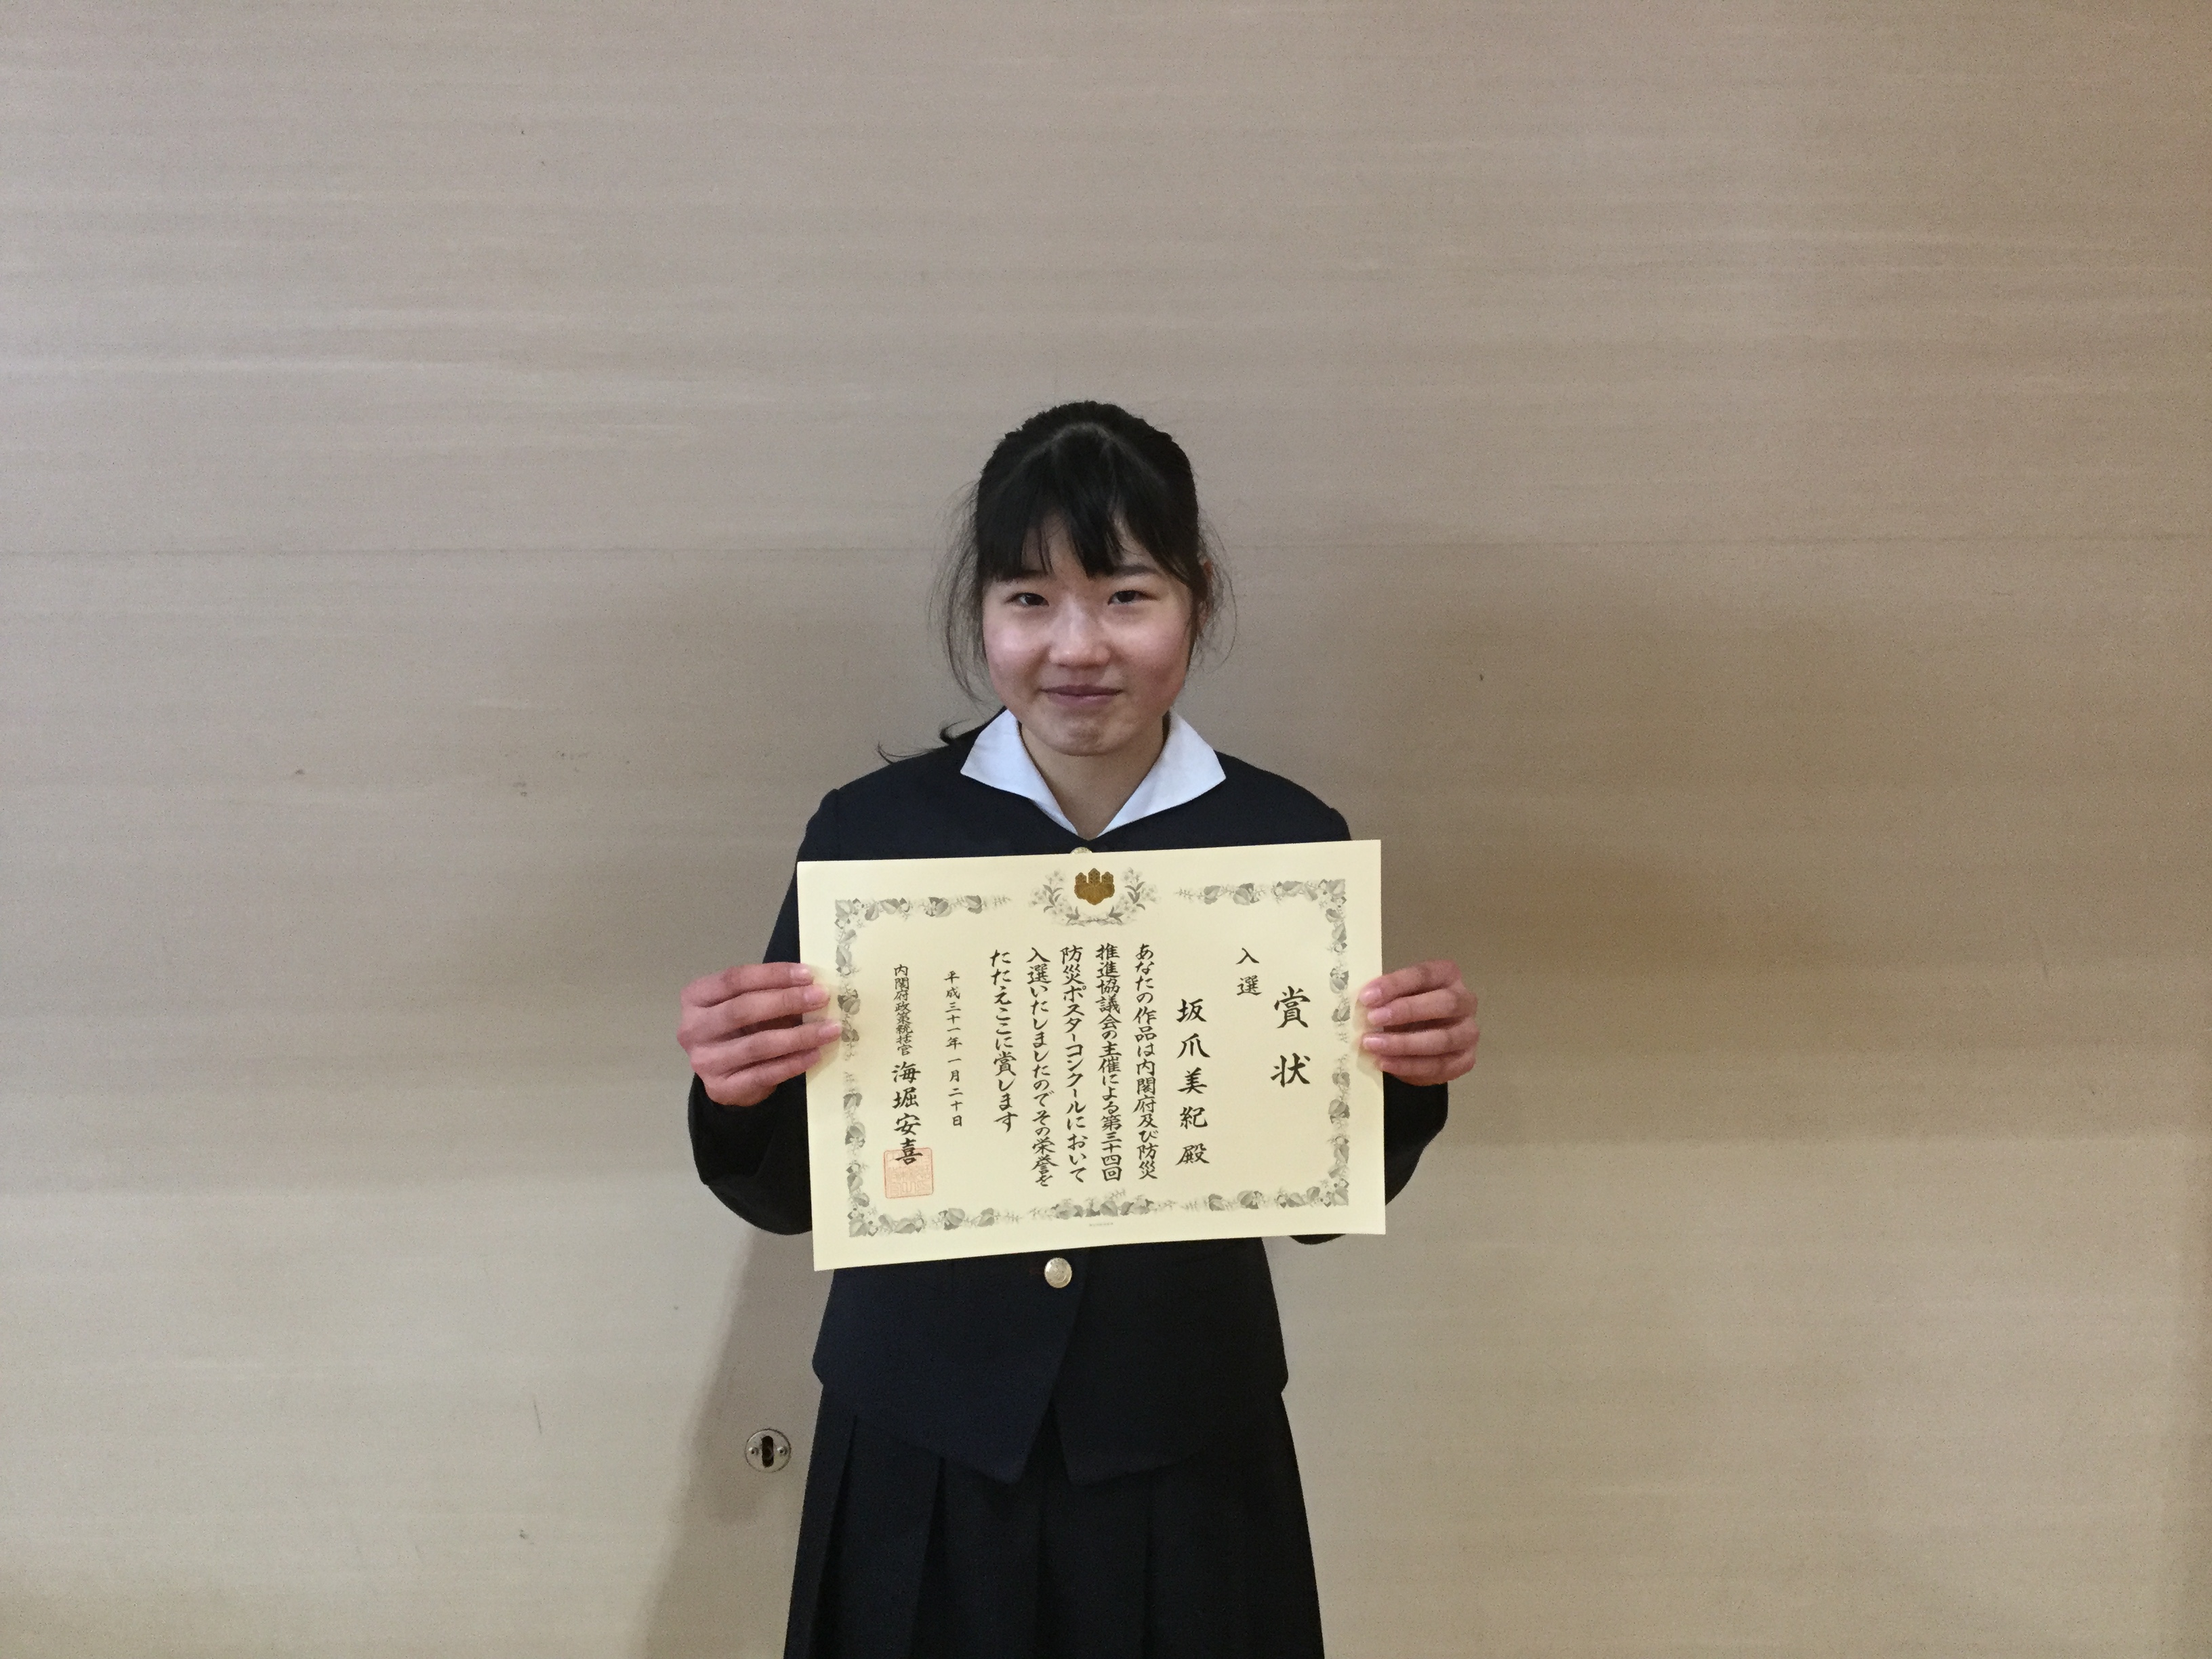 賞状
入選
坂爪美紀殿
あなたの作品は内閣府及び防災
推進協議会の主催による第三十四回
防災ポスターコンクールにおいて
入選いたしましたのでその栄誉を
たたえここに賞します
平成三十一年一月二十日
内閣府政策統括官 海堀安喜